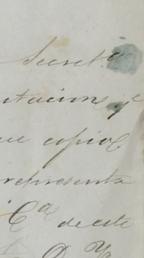 Secret
ntacion y
ue copia
representa
Cª de este